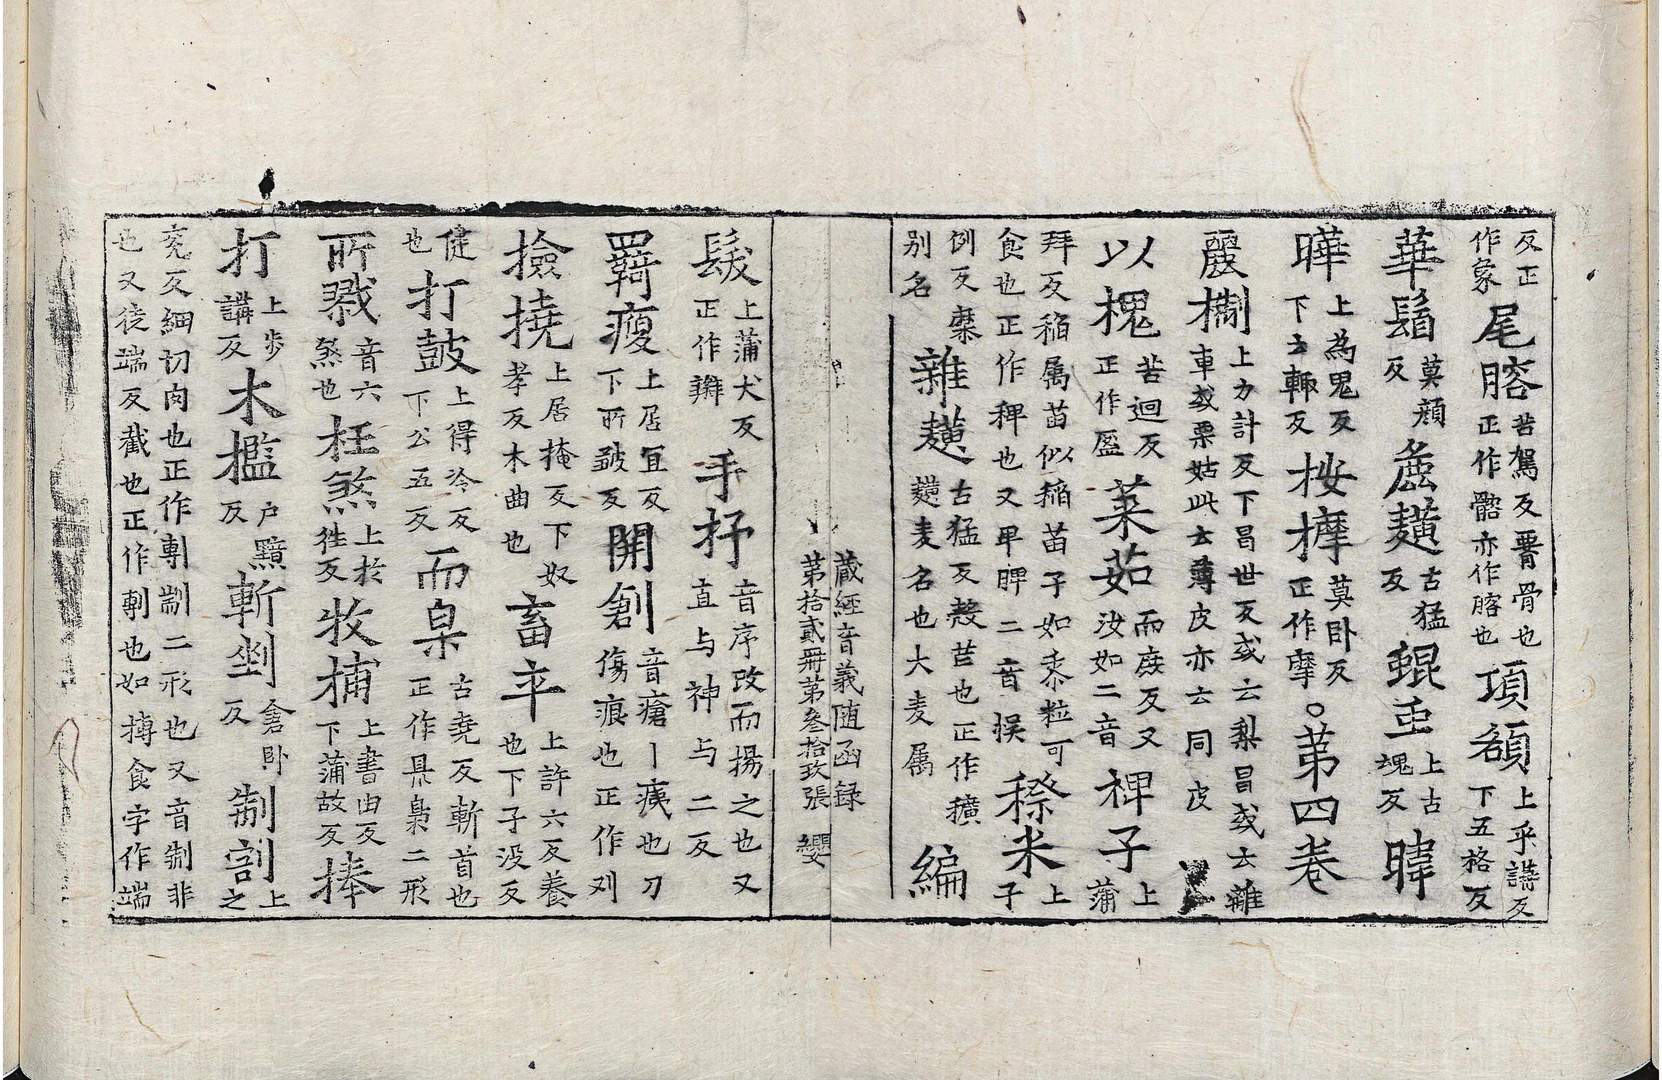 反正作象尾䯊苦駕反䯊骨也正作髂亦作䯊也項額上乎講反下五格反
華鬘莫顔反麁䵃古猛反錕䥐上古塊反暐
曄上為鬼反下云輙反桉摩莫卧反正作摩○第四卷
麗櫊上力計反下昌世反或云梨昌或云離車或栗姑此云薄皮亦云同皮
以槐苦迴反正作盔菜茹而庶反又汝如二音稗子上蒲
拜反稲属苗似稲苗子如黍粒可食也正作稗也又卑脾二音悮穄米上子
例反穈別名雜䵃古猛反䅽芒也正作穬䵃麦名也大麦属編
藏經音義随函録
第拾貳冊第叁拾玖張 纓
髮上蒲犬反正作辮手抒音序改而揚之也又直与神与二反
羇瘦上居宜反下所皱反開創音瘡丨痍也刀傷痕也正作刈
撿撓上居掩反下奴孝反木曲也畜卒上許六反養也下子没反
健也打鼓上得冷反下公五反而梟古堯反斬首也正作㬎梟二形
所戮音六煞也枉煞上於徃反牧捕上書由反下蒲故反捧
打上步講反木檻户黤反斬剉倉卧反剬割上之
兖反細切肉也正作剸剬二形也又音制非也又徒端反截也正作剸也如摶食字作端